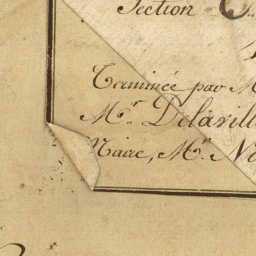 Section C
Terminée par M
Mr. Delavill
Maire, Mr. No